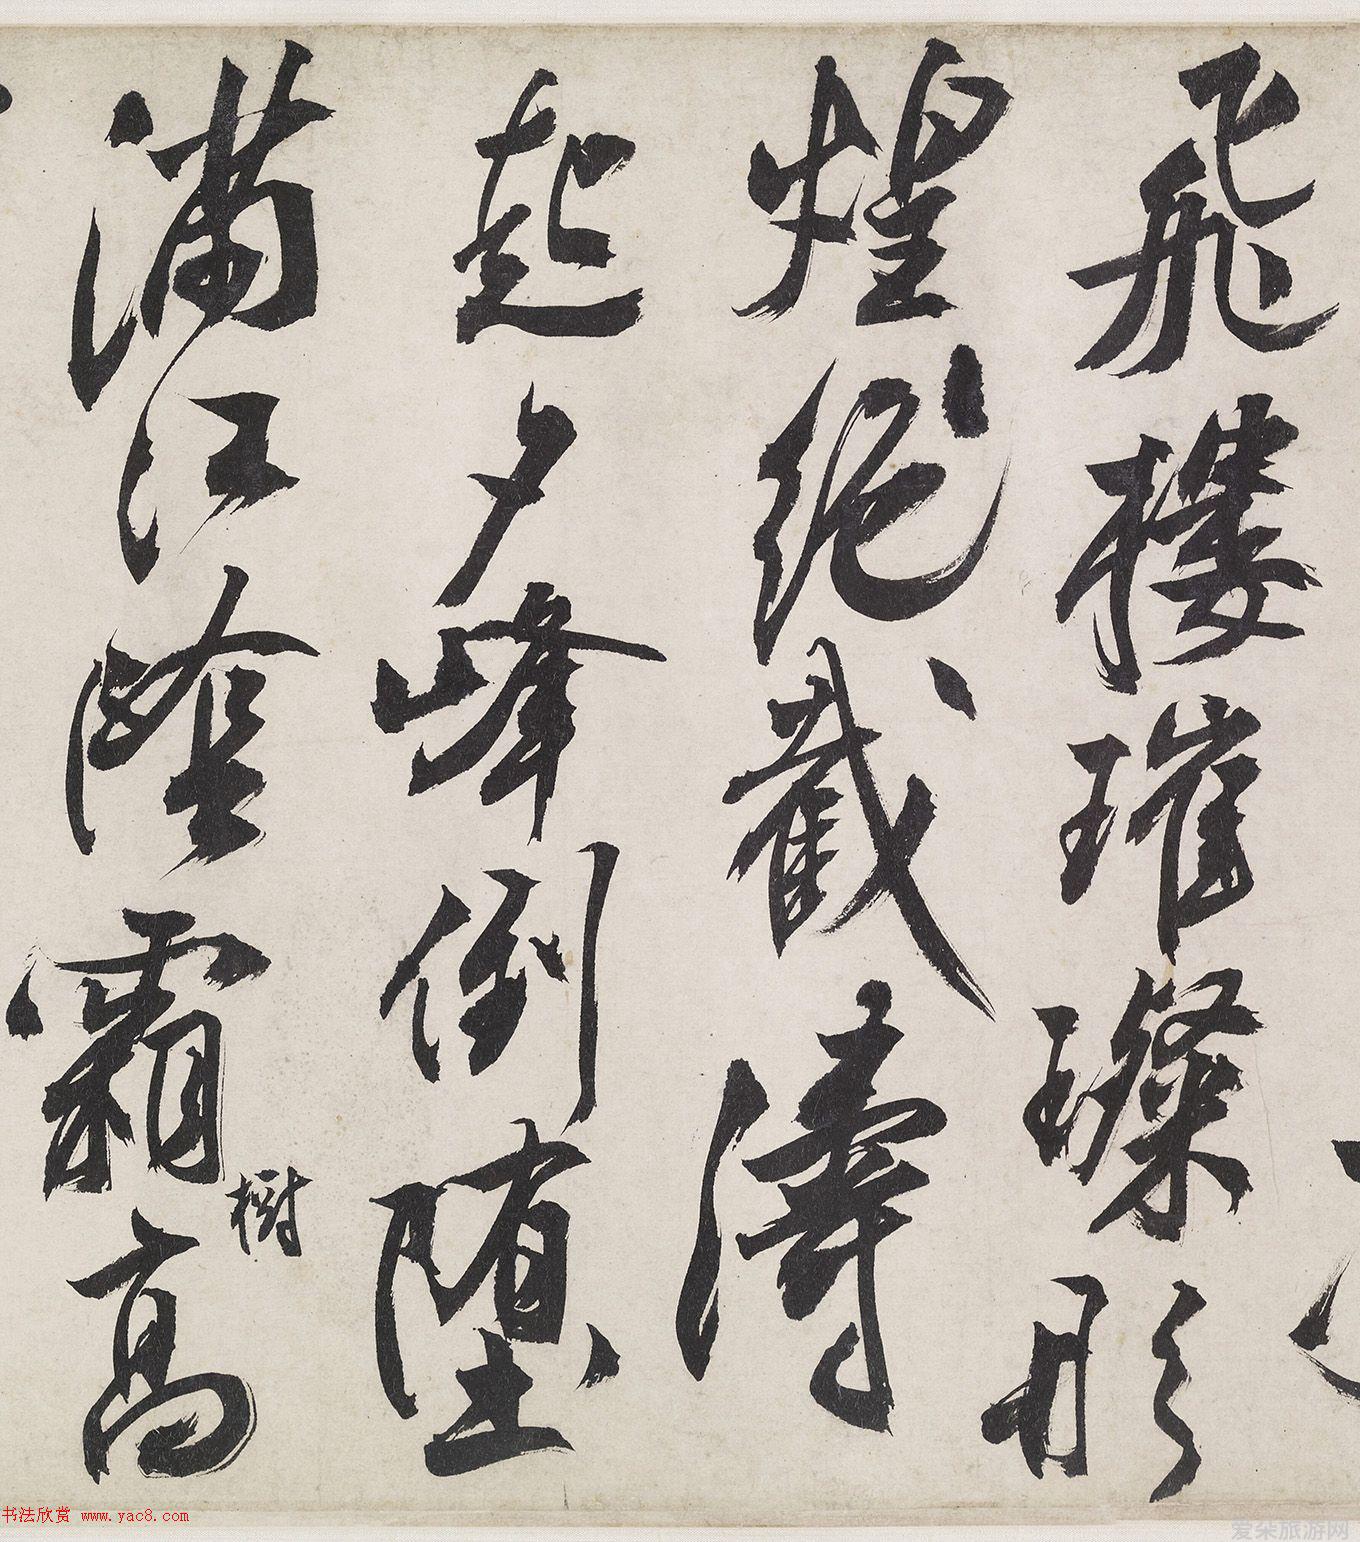 飛樓璀璨彤
煌絕截濤
起夕峰倒墮
滿江陰霜高
樹
书法欣赏 www.yac8.com
爱朵旅游网